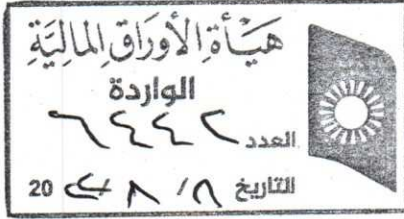 هَيْـأة الأوراق المَاليَّة
الواردة
العدد ٦٤٤٢
التاريخ ٨/ ٨ / 20